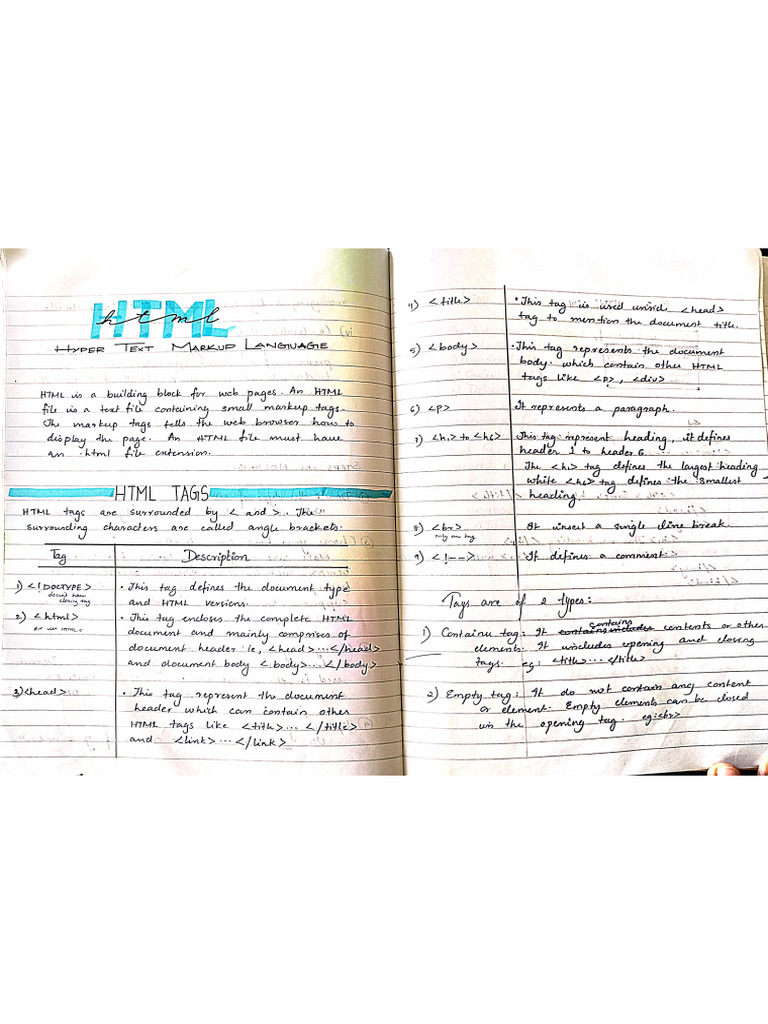 HTML
html
HYPER TEXT MARKUP LANGUAGE
HTML is a building block for web pages. An HTML
file is a text file containing small markup tags.
The markup tags tells the web browser how to
display the page. An HTML file must have
an .html file extension.
HTML TAGS
HTML tags are surrounded by < and >. The
surrounding characters are called angle brackets.
Tag Description
1) <!DOCTYPE> • This tag defines the document type
closing tag and HTML versions.
2) <html> • This tag encloses the complete HTML
document and mainly comprises of
document header ie, <head>...</head>
and document body <body>...</body>
3) <head> • This tag represent the document
header which can contain other
HTML tags like <title>... </title>
and <link>...</link>
4) <title> • This tag is used <head>
tag to mention the document title.
5) <body> • This tag represents the document
body. which contain other HTML
tags like <p>, <div>
6) <p> It represents a paragraph.
7) <h1> to <h6> This tag represent heading, it defines
header 1 to header 6.
The <h1> tag defines the largest heading
white <h6> tag defines the smallest
heading.
8) <br> It insect a single line break.
only one tag
9) <!--> It defines a comment.
Tags are of 2 types:
1) Containu tag: It contains contents or other
elements. It includes opening and closing
tags. eg: <title>...</title>
2) Empty tag: It do not contain any content
or element. Empty elements can be closed
in the opening tag. eg:<br>